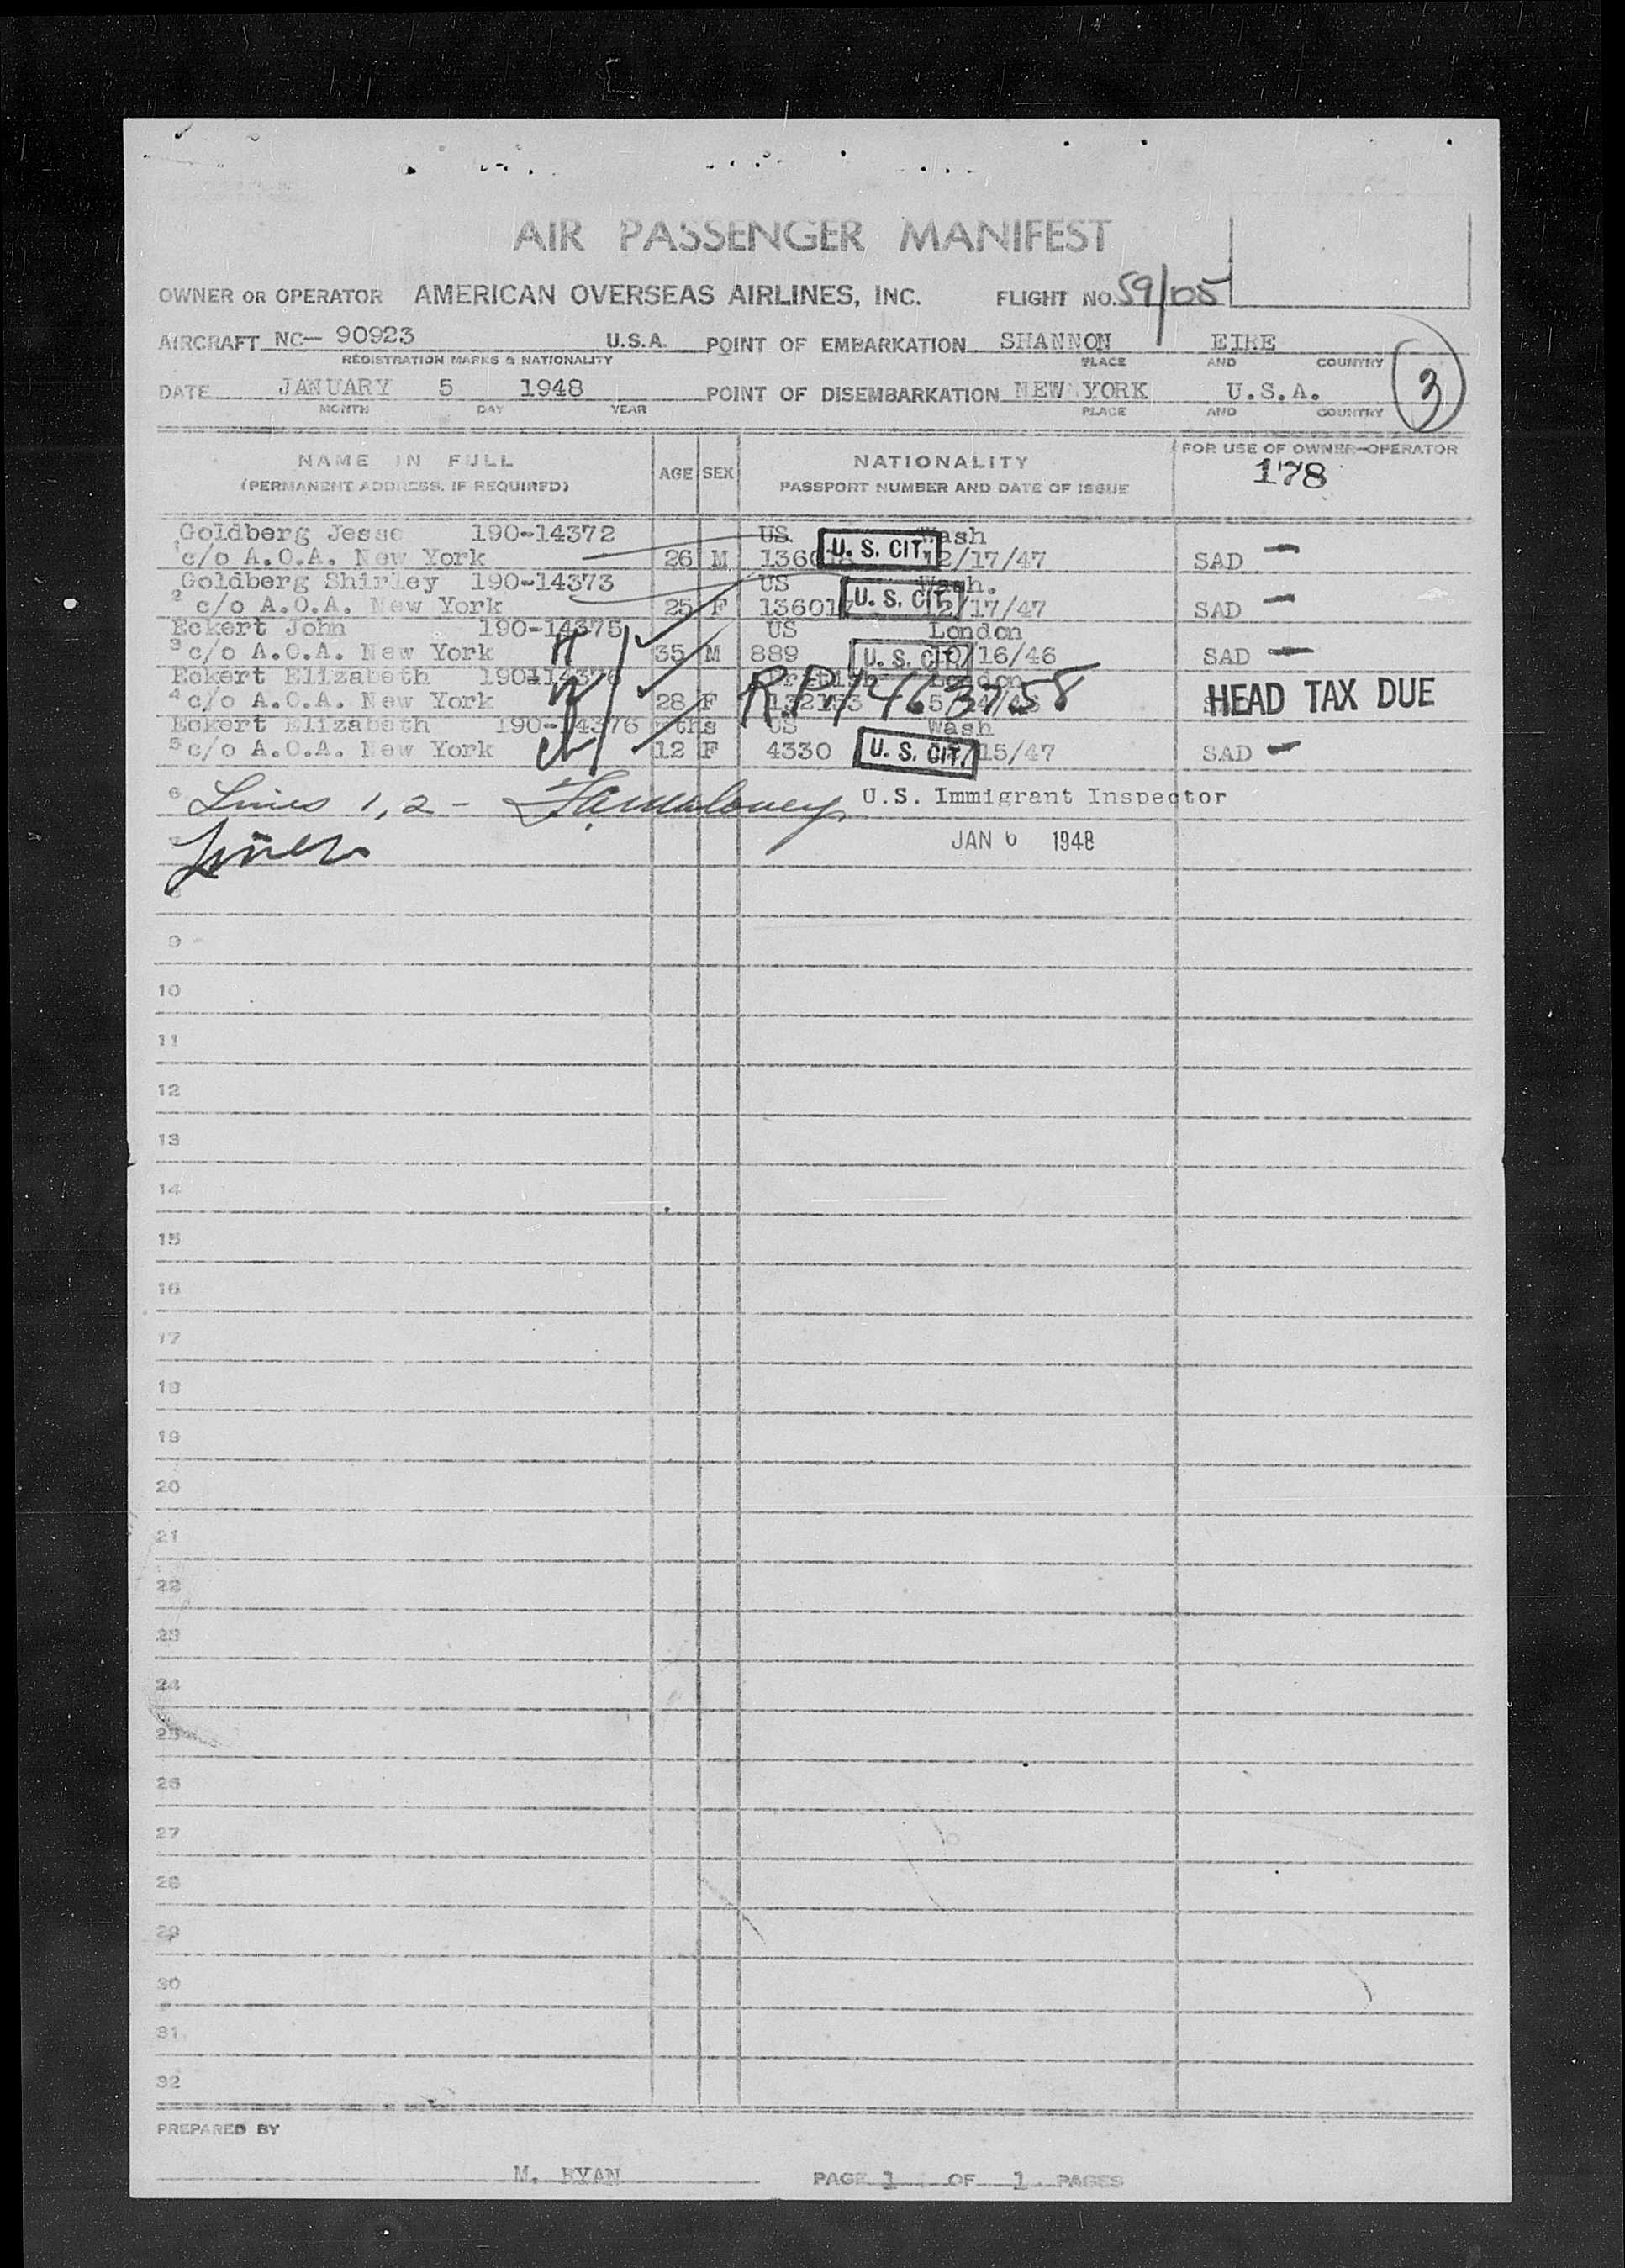 AIR PASSENGER MANIFEST
OWNER OR OPERATOR AMERICAN OVERSEAS AIRLINES, INC. FLIGHT NO. 59/05
AIRCRAFT NC- 90923 U.S.A. POINT OF EMBARKATION SHANNON EIRE
REGISTRATION MARKS & NATIONALITY PLACE AND COUNTRY
DATE JANUARY 5 1948 POINT OF DISEMBARKATION NEW YORK U.S.A.
MONTH DAY YEAR PLACE AND COUNTRY
3
NAME IN FULL
(PERMANENT ADDRESS, IF REQUIRED)
AGE SEX
NATIONALITY
PASSPORT NUMBER AND DATE OF ISSUE
FOR USE OF OWNER-OPERATOR
178
Goldberg Jesse 190-14372 US Wash
1 c/o A.O.A. New York 26 M U. S. CIT. 12/17/47 SAD -
Goldberg Shirley 190-14373 US Wash.
2 c/o A.O.A. New York 25 F 136017 U. S. CIT. 12/17/47 SAD -
Eckert John 190-14375 US London
3 c/o A.O.A. New York 35 M 889 U. S. CIT. 10/16/46 SAD -
Eckert Elizabeth 190-14376 British London
4 c/o A.O.A. New York 28 F RP 1463758 HEAD TAX DUE
Eckert Elizabeth 190-14376 mths US Wash
5 c/o A.O.A. New York 12 F 4330 U. S. CIT. 15/47 SAD -
6 Lines 1, 2 - U.S. Immigrant Inspector
7 Lines JAN 6 1948
8
9
10
11
12
13
14
15
16
17
18
19
20
21
22
23
24
25
26
27
28
29
30
31
32
PREPARED BY
M. RYAN PAGE 1 OF 1 PAGES